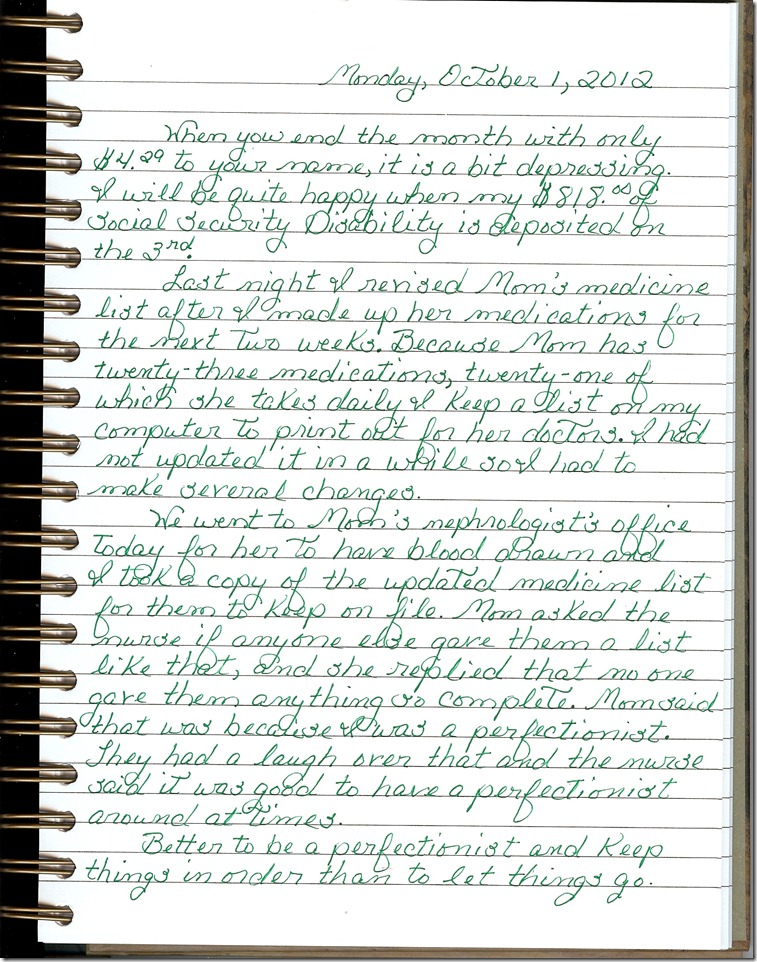 Monday, October 1, 2012
When you end the month with only
$4.29 to your name, it is a bit depressing.
I will be quite happy when my $818.00 of
Social Security Disability is deposited on
the 3rd!
Last night I revised Mom's medicine
list after I made up her medications for
the next two weeks. Because Mom has
twenty-three medications, twenty-one of
which she takes daily I keep a list on my
computer to print out for her doctors. I had
not updated it in a while so I had to
make several changes.
We went to Mom's nephrologist's office
today for her to have blood drawn and
I took a copy of the updated medicine list
for them to keep on file. Mom asked the
nurse if anyone else gave them a list
like that, and she replied that no one
gave them anything so complete. Mom said
that was because I was a perfectionist.
They had a laugh over that and the nurse
said it was good to have a perfectionist
around at times.
Better to be a perfectionist and keep
things in order than to let things go.